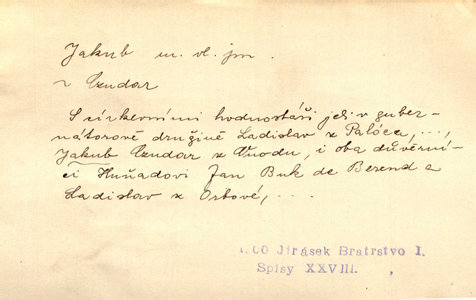 Jakub m. vl. jm.
z Czudar
S církevními hodnostáři jeli v guber-
nátorově družině Ladislav z Palóca, ...,
Jakub Czudar z Ónodu, i oba důvěrní-
ci Huňadovi Jan Buk de Berend a
Ladislav z Orbové, ...
1.00 Jirásek Bratrstvo I.
Spisy XXVIII.